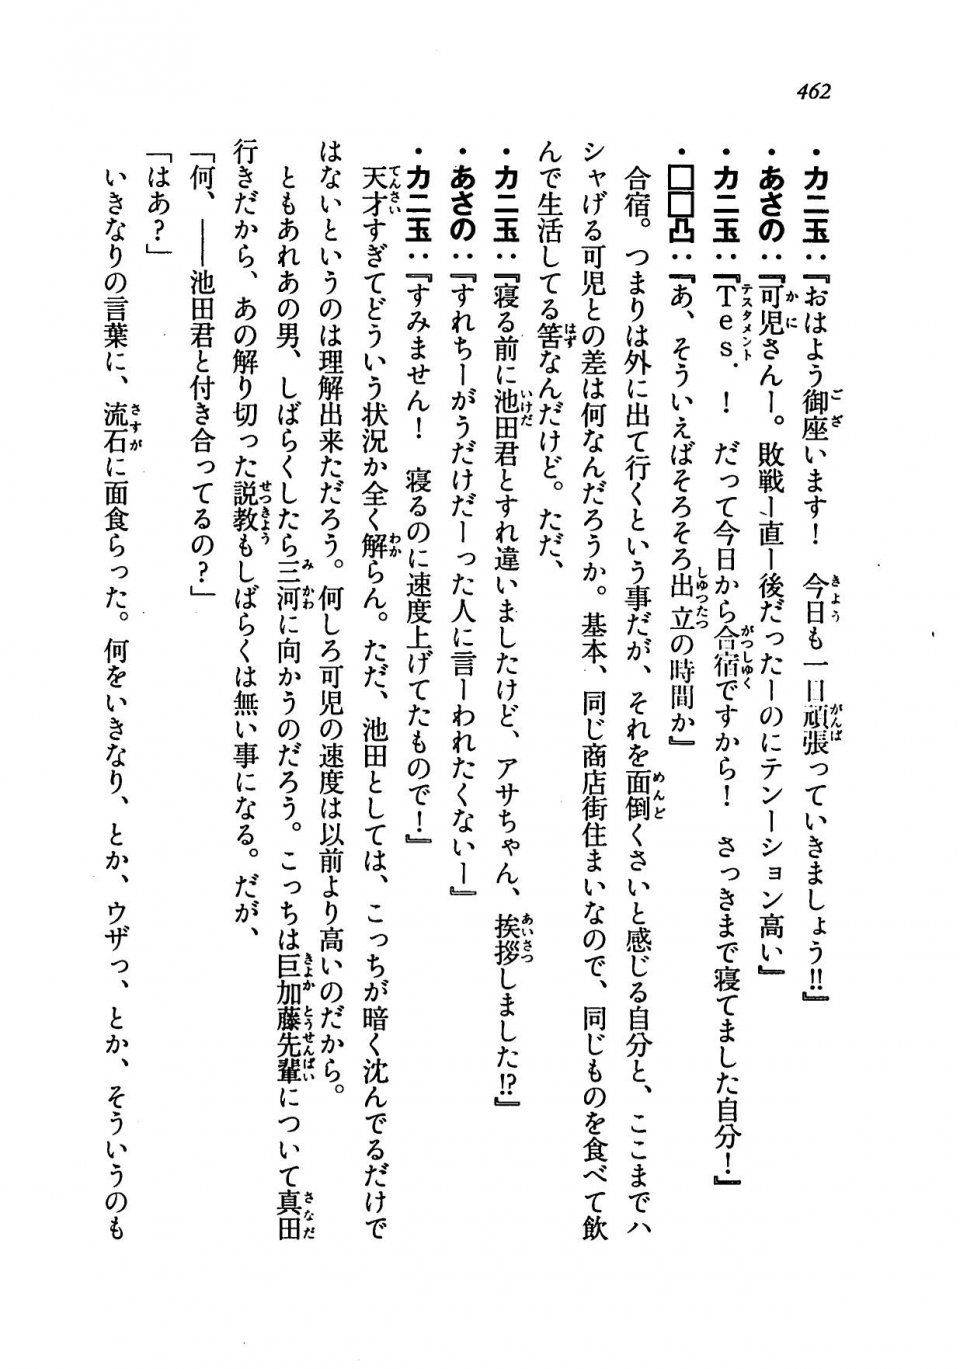 462
・カニ玉：『おはよう御座います！　今日も一日頑張っていきましょう!!』
・あさの：『可児さんー。敗戦ー直ー後だったーのにテンーション高い』
・カニ玉：『Ｔｅｓ．！　だって今日から合宿ですから！　さっきまで寝てました自分！』
・□□凸：『あ、そういえばそろそろ出立の時間か』
　合宿。つまりは外に出て行くという事だが、それを面倒くさいと感じる自分と、ここまでハ
シャげる可児との差は何なんだろうか。基本、同じ商店街住まいなので、同じものを食べて飲
んで生活してる筈なんだけど。ただ、
・カニ玉：『寝る前に池田君とすれ違いましたけど、アサちゃん、挨拶しました!?』
・あさの：『すれちーがうだけだーった人に言ーわれたくないー』
・カニ玉：『すみません！　寝るのに速度上げてたもので！』
　天才すぎてどういう状況か全く解らん。ただ、池田としては、こっちが暗く沈んでるだけで
はないというのは理解出来ただろう。何しろ可児の速度は以前より高いのだから。
　ともあれあの男、しばらくしたら三河に向かうのだろう。こっちは巨加藤先輩について真田
行きだから、あの解り切った説教もしばらくは無い事になる。だが、
「何、――池田君と付き合ってるの？」
「はあ？」
　いきなりの言葉に、流石に面食らった。何をいきなり、とか、ウザっ、とか、そういうのも